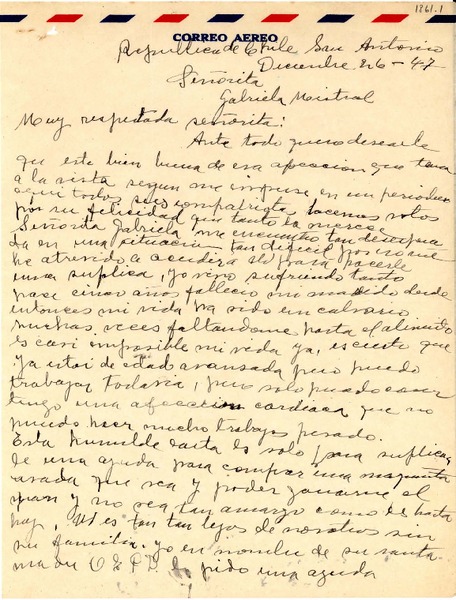 1861.1
CORREO AEREO
Republica de Chile San Antonio
Diciembre 26-47
Señorita
Gabriela Mistral
Muy respetada señorita:
Ante todo quiero desearle
que este bien buena de esa afeccion que tenia
a la vista segun me impuse en un periodico
aqui todos sus compatriotas hacemos votos
por su felicidad que tanto la merece
Señorita Gabriela me encuentro tan desespera
da en una situacion tan dificil por eso me
he atrevido a acudir a Ud para hacerle
una suplica, yo vivo sufriendo tanto
hace cinco años fallecio mi marido desde
entonces mi vida ha sido un calvario
muchas veces faltandome hasta el alimento
es casi imposible mi vida ya, es cierto que
ya estoi de edad avansada pero puedo
trabajar todavia, pero solo puedo coser
tengo una afeccion cardiaca que no
puedo hacer mucho trabajo pesado.
Esta humilde carta es solo para suplicar
le de una ayuda para comprar una maquinita
usada que sea y poder ganarme el
pan y no sea tan amargo como es hasta
hoy, Ud es tan tan lejos de nosotros sin
su familia. yo en nombre de su santa
madre Q.E.P.D. le pido una ayuda